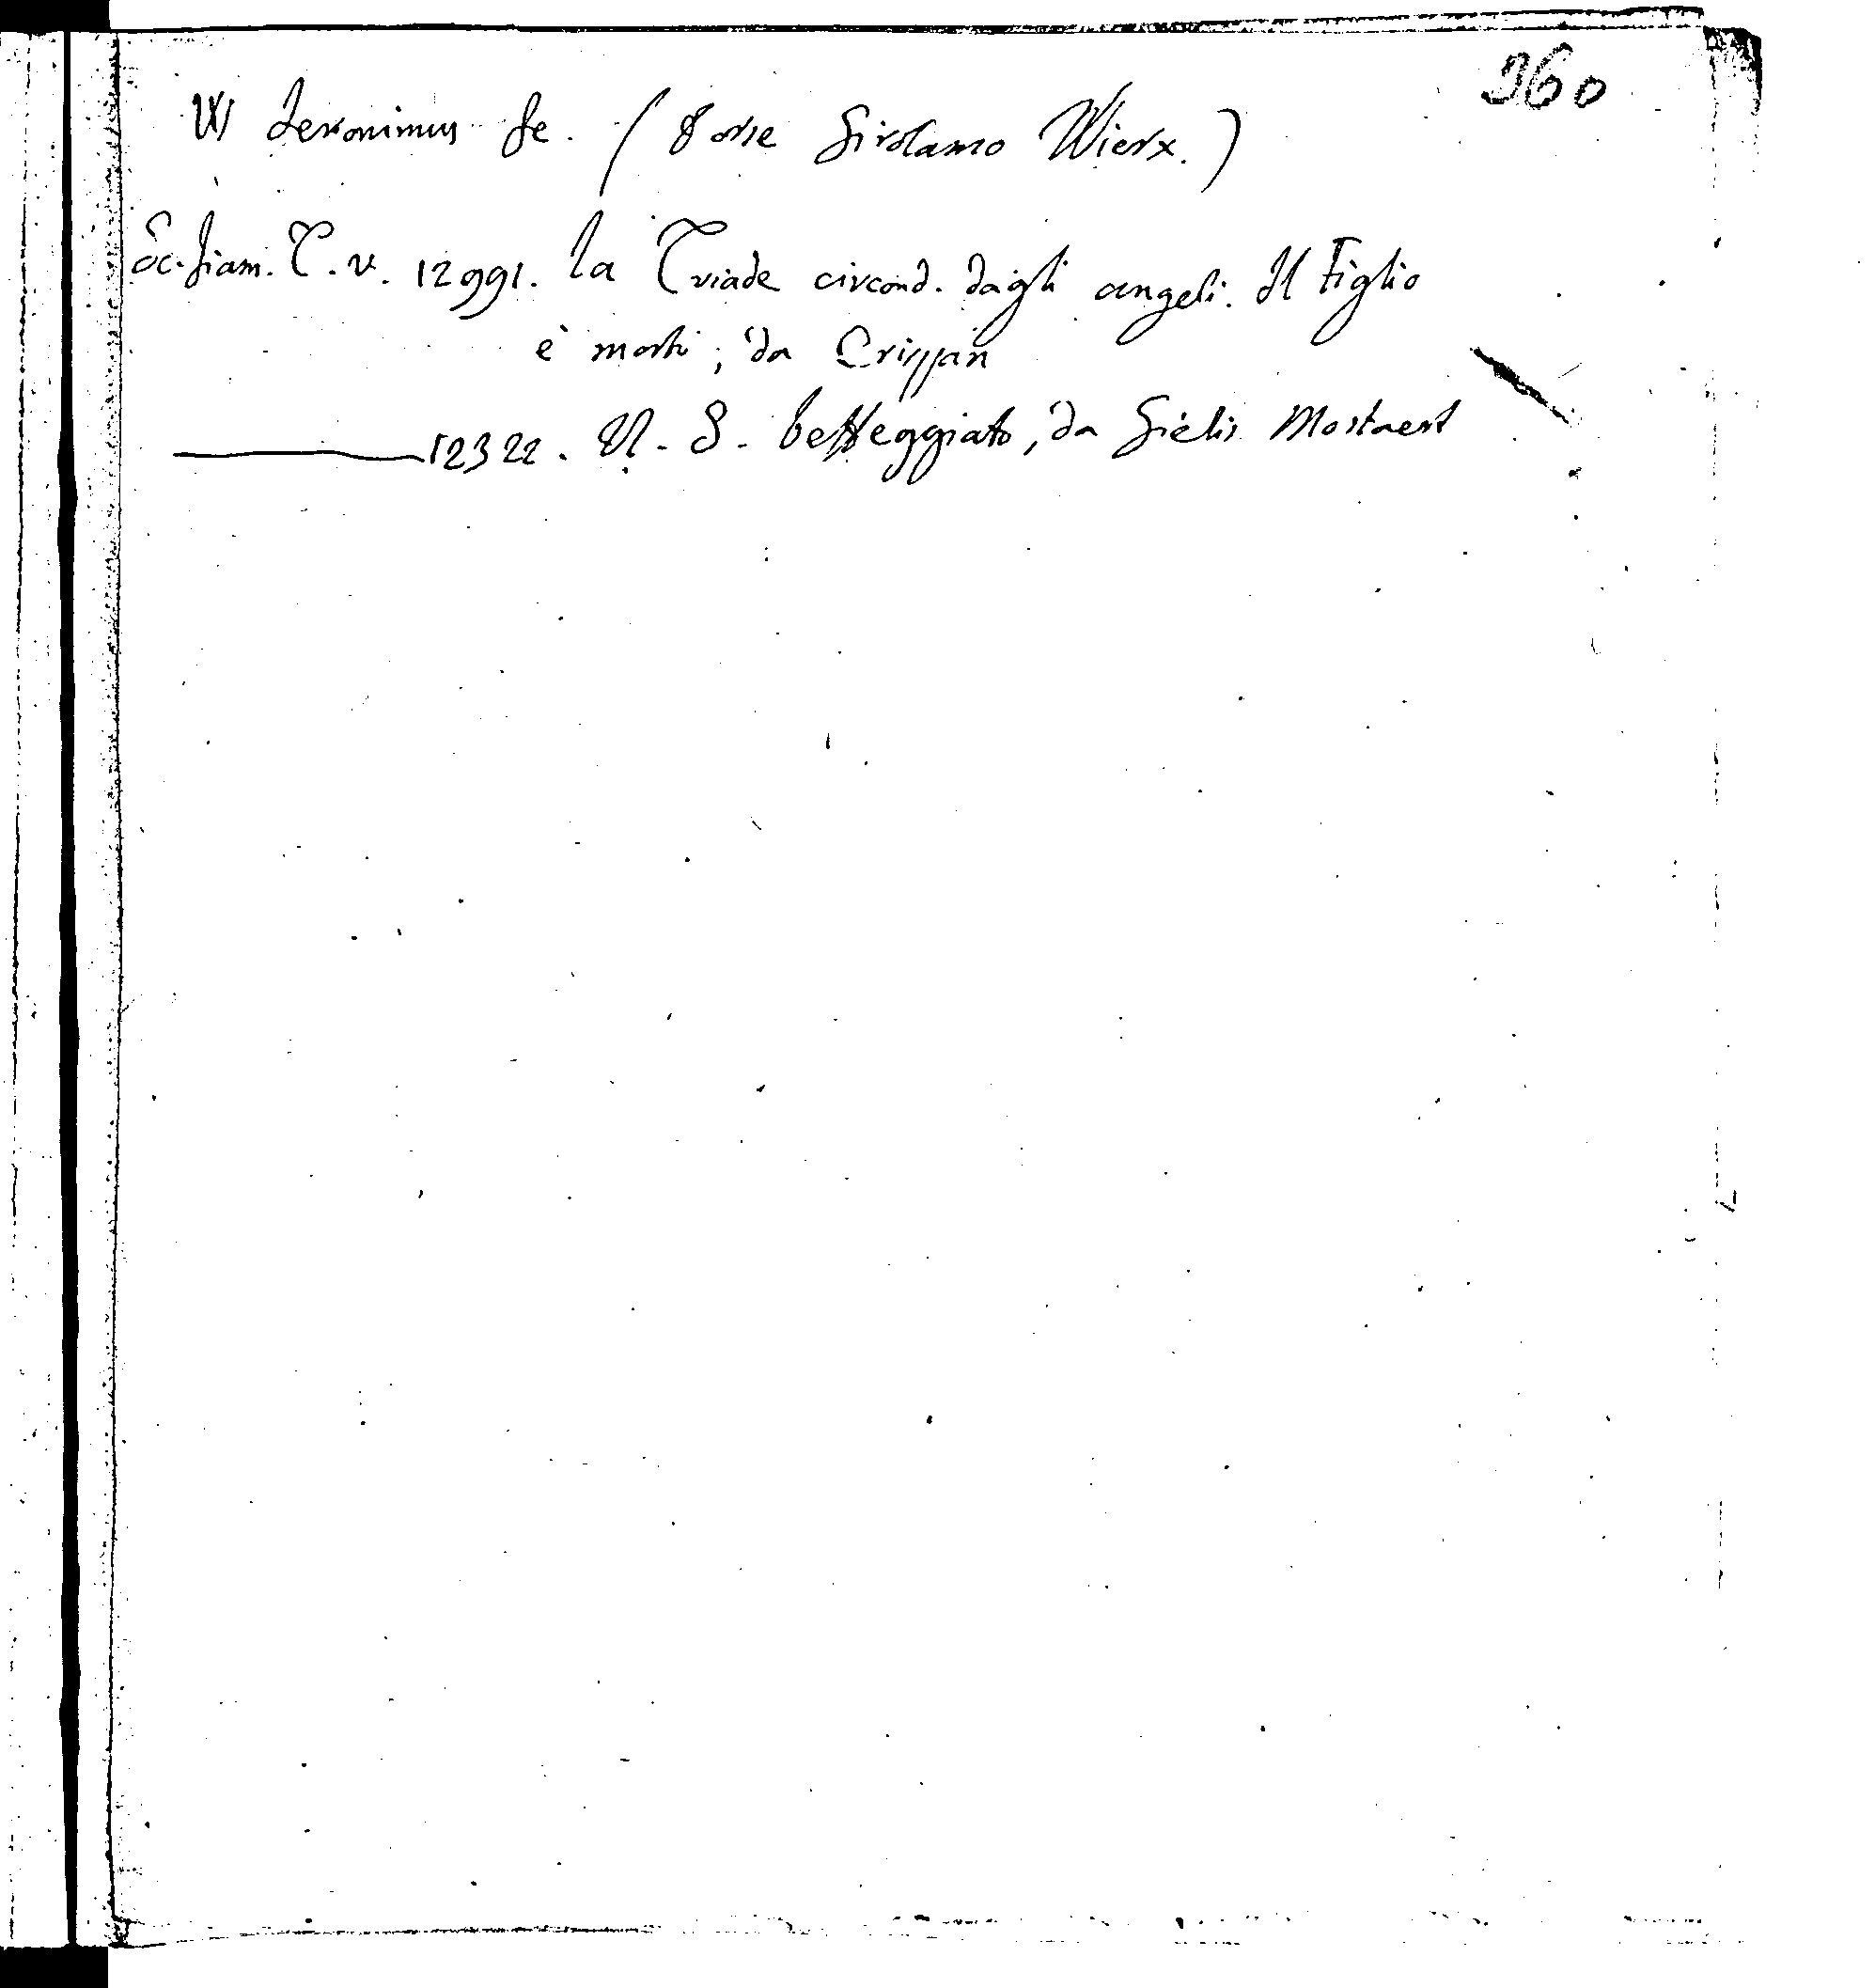 360
W Jeronimus fe. (Forse Girolamo Wierx.)
Sc. fiam. T. v. 12991. La Triade circond. dagli angeli. Il Figlio
è morto; da Crispan
12322. N. S. beffeggiato, da Gielis Mostaert